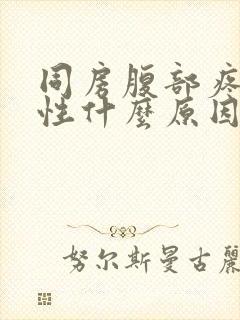 同房腹部疼
性什麼原因
努尔斯曼古麗